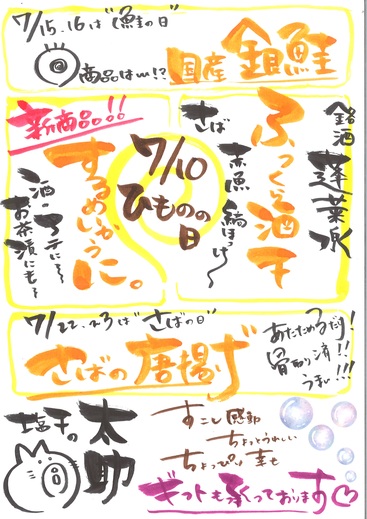 7/15.16は"鮭の日"
商品は〰!?
国産 銀鮭
新商品!!
するめいかうに。
酒のアテに〜
お茶漬にも〜
7/10
ひものの
日
銘酒
蓬莱泉
ふっくら酒干
さば
赤魚
縞ほっけ〜
7/22.23は"さばの日"
さばの唐揚げ
あたためるだけ!
骨取り済!!
うまい!!!
塩干の
太助
すこし感動
ちょっとうれしい
ちょっぴり幸せ
ギフトも承っております♡